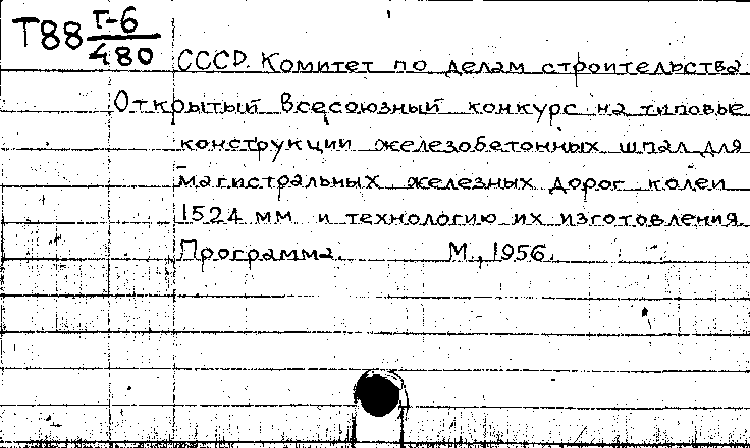 Т88 Т-6
480
СССР. Комитет по делам строительства
Открытый Всесоюзный конкурс на типовые
конструкции железобетонных шпал для
магистральных железных дорог колеи
1524 мм и технологию их изготовления.
Программа. М., 1956.